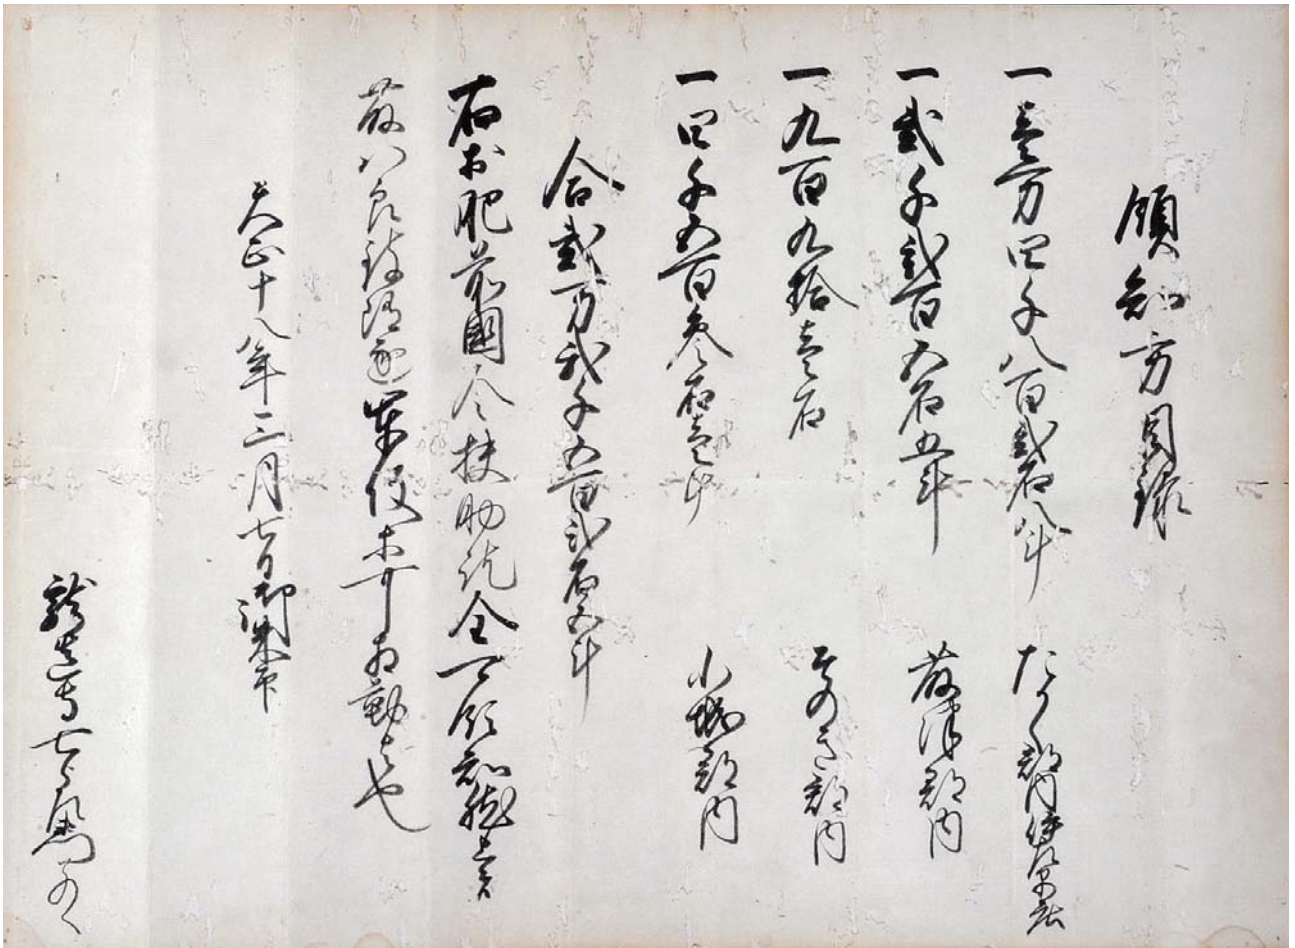 領知方目録
一壱万四千八百弐石八斗 たく郡内伊早庄
一弐千弐百五石五斗 藤津郡内
一九百九拾壱石 そのき郡内
一四千五百参石壱斗 小城郡内
合弐万弐千五百弐石五斗
右於肥前國令扶助訖全可領知然上者
藤八郎
軍役等可相勤者也
天正十八年三月七日御朱印
龍造寺七家のへ